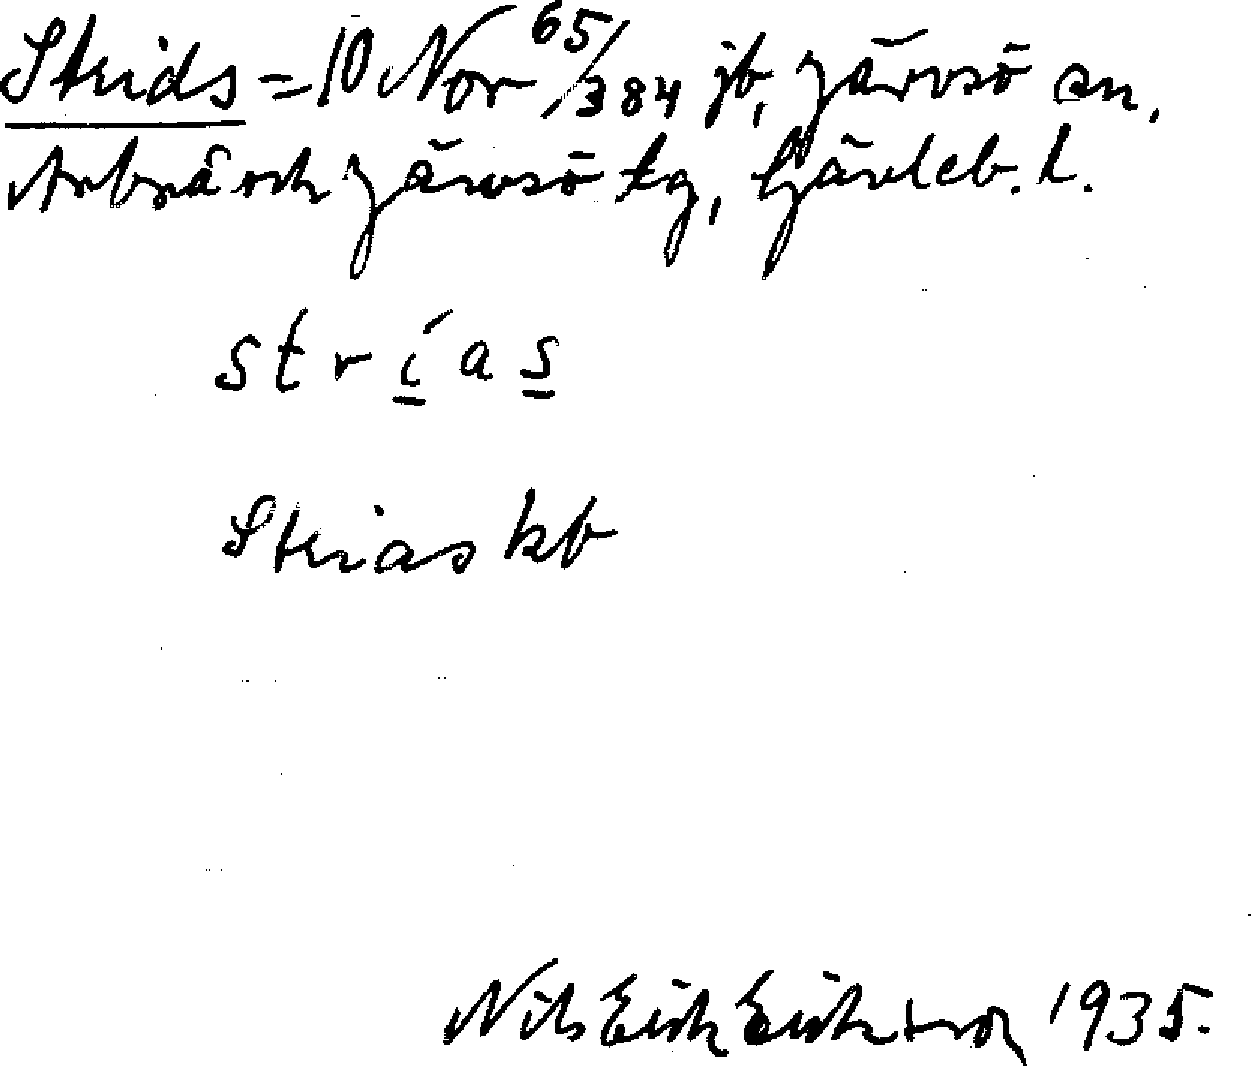 Strids = 10 Nor 65/384 jb, Järvsö sn,
Arbrå och Järvsö tg, Gävleb. l.
strías
Strias kb
Nils Erik Eriksson 1935.